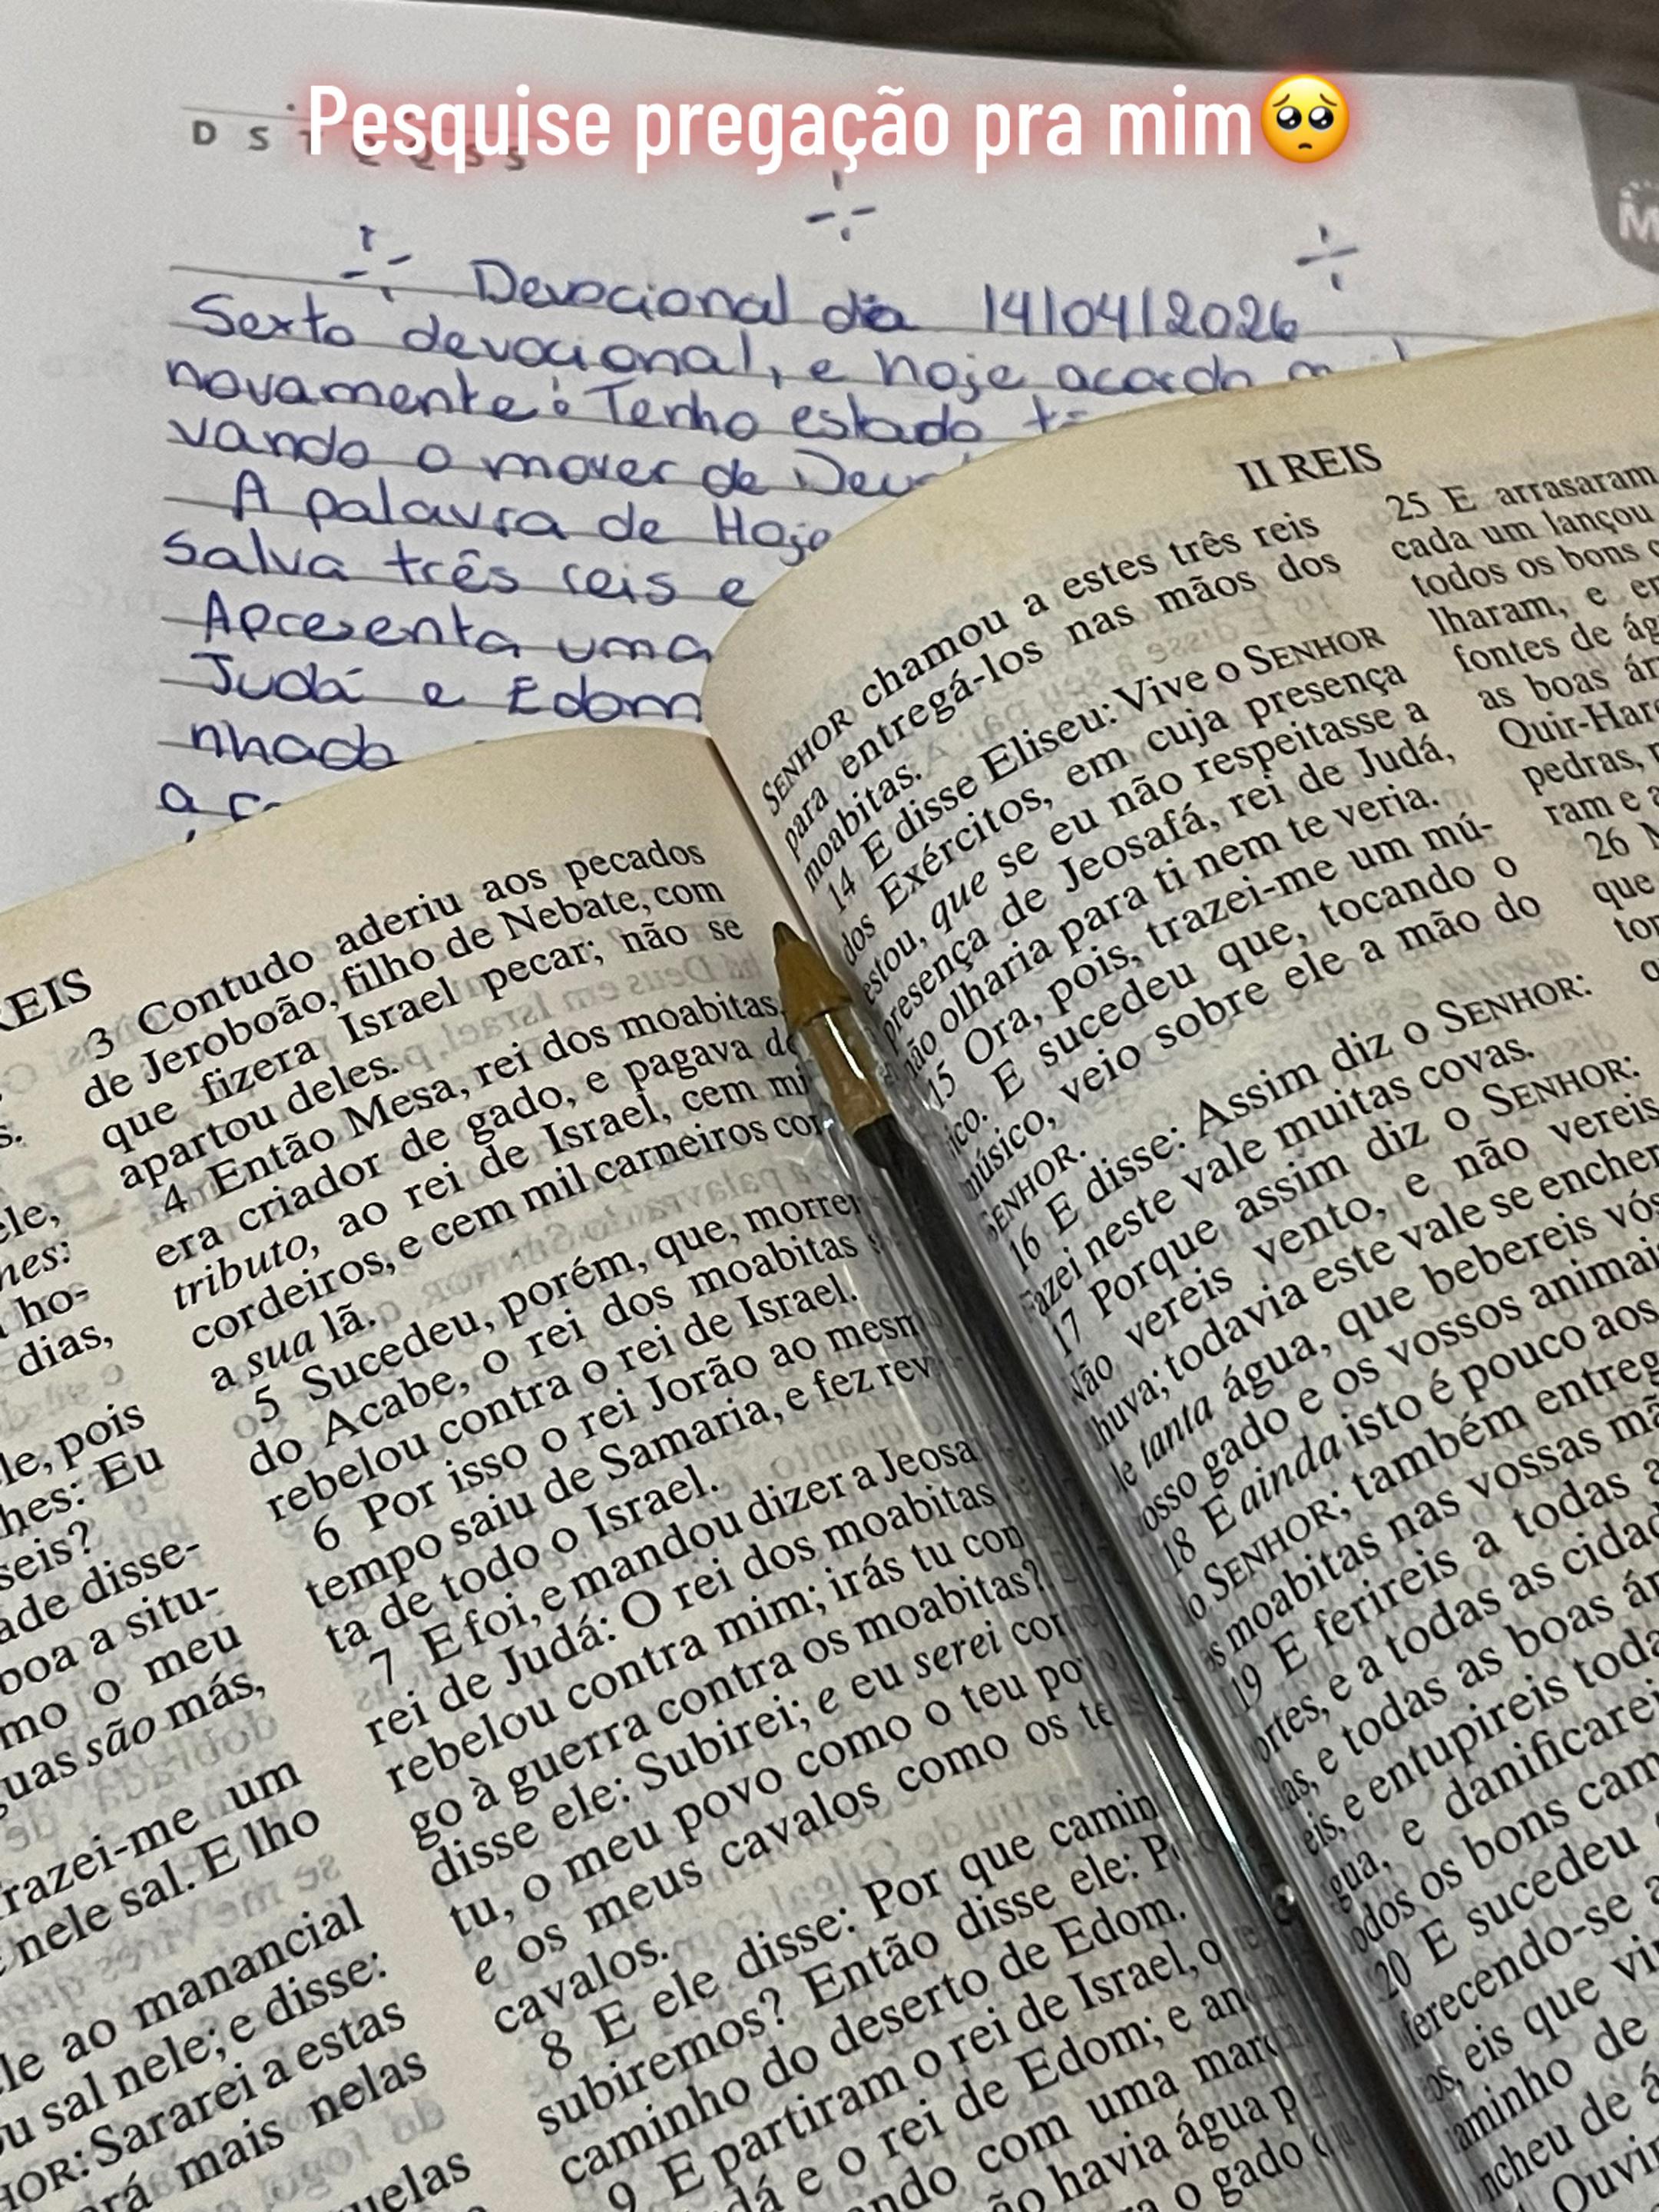 Pesquise pregação pra mim🥺
D S T Q Q S S
Devocional dia 14/04/2026
Sexto devocional, e hoje acordo
novamente! Tenho estado
vando o mover de Deus
A palavra de Hoje
Salva três reis e
Apresenta uma
Judá e Edom
nhado
a
REIS
ele,
hes:
ho-
dias,
le, pois
hes: Eu
seis?
ade disse-
boa a situ-
mo o meu
guas são más,
razei-me um
nele sal. E lho
le ao manancial
ou sal nele; e disse:
HOR: Sararei a estas
rá mais nelas
uelas
3 Contudo aderiu aos pecados
de Jeroboão, filho de Nebate, com
que fizera Israel pecar; não se
apartou deles.
4 Então Mesa, rei dos moabitas,
era criador de gado, e pagava de
tributo, ao rei de Israel, cem mi
cordeiros, e cem mil carneiros com
a sua lã.
5 Sucedeu, porém, que, morren
do Acabe, o rei dos moabitas s
rebelou contra o rei de Israel.
6 Por isso o rei Jorão ao mesm
tempo saiu de Samaria, e fez revi
ta de todo o Israel.
7 E foi, e mandou dizer a Jeosa
rei de Judá: O rei dos moabitas
rebelou contra mim; irás tu com
go à guerra contra os moabitas?
disse ele: Subirei; e eu serei com
tu, o meu povo como o teu po
e os meus cavalos como os te
cavalos.
8 E ele disse: Por que camin
subiremos? Então disse ele: P
caminho do deserto de Edom.
9 E partiram o rei de Israel, o
dá e o rei de Edom; e and
ando com uma marc
ão havia água p
a o gado
II REIS
SENHOR chamou a estes três reis
para entregá-los nas mãos dos
moabitas.
14 E disse Eliseu: Vive o SENHOR
dos Exércitos, em cuja presença
estou, que se eu não respeitasse a
presença de Jeosafá, rei de Judá,
não olharia para ti nem te veria.
15 Ora, pois, trazei-me um mú-
ico. E sucedeu que, tocando o
músico, veio sobre ele a mão do
SENHOR.
16 E disse: Assim diz o SENHOR:
Fazei neste vale muitas covas.
17 Porque assim diz o SENHOR:
Não vereis vento, e não vereis
huva; todavia este vale se encher
de tanta água, que bebereis vós
osso gado e os vossos animai
18 E ainda isto é pouco aos
o SENHOR; também entreg
os moabitas nas vossas mã
19 E ferireis a todas a
ortes, e a todas as cidad
as, e todas as boas ár
eis, e entupireis toda
gua, e danificarei
odos os bons cam
20 E sucedeu
ferecendo-se a
os, eis que vi
aminho de
ncheu de á
Ouvin
25 E arrasaram
cada um lançou
todos os bons c
lharam, e en
fontes de ág
as boas ár
Quir-Hare
pedras,
ram e a
26 M
que
tor